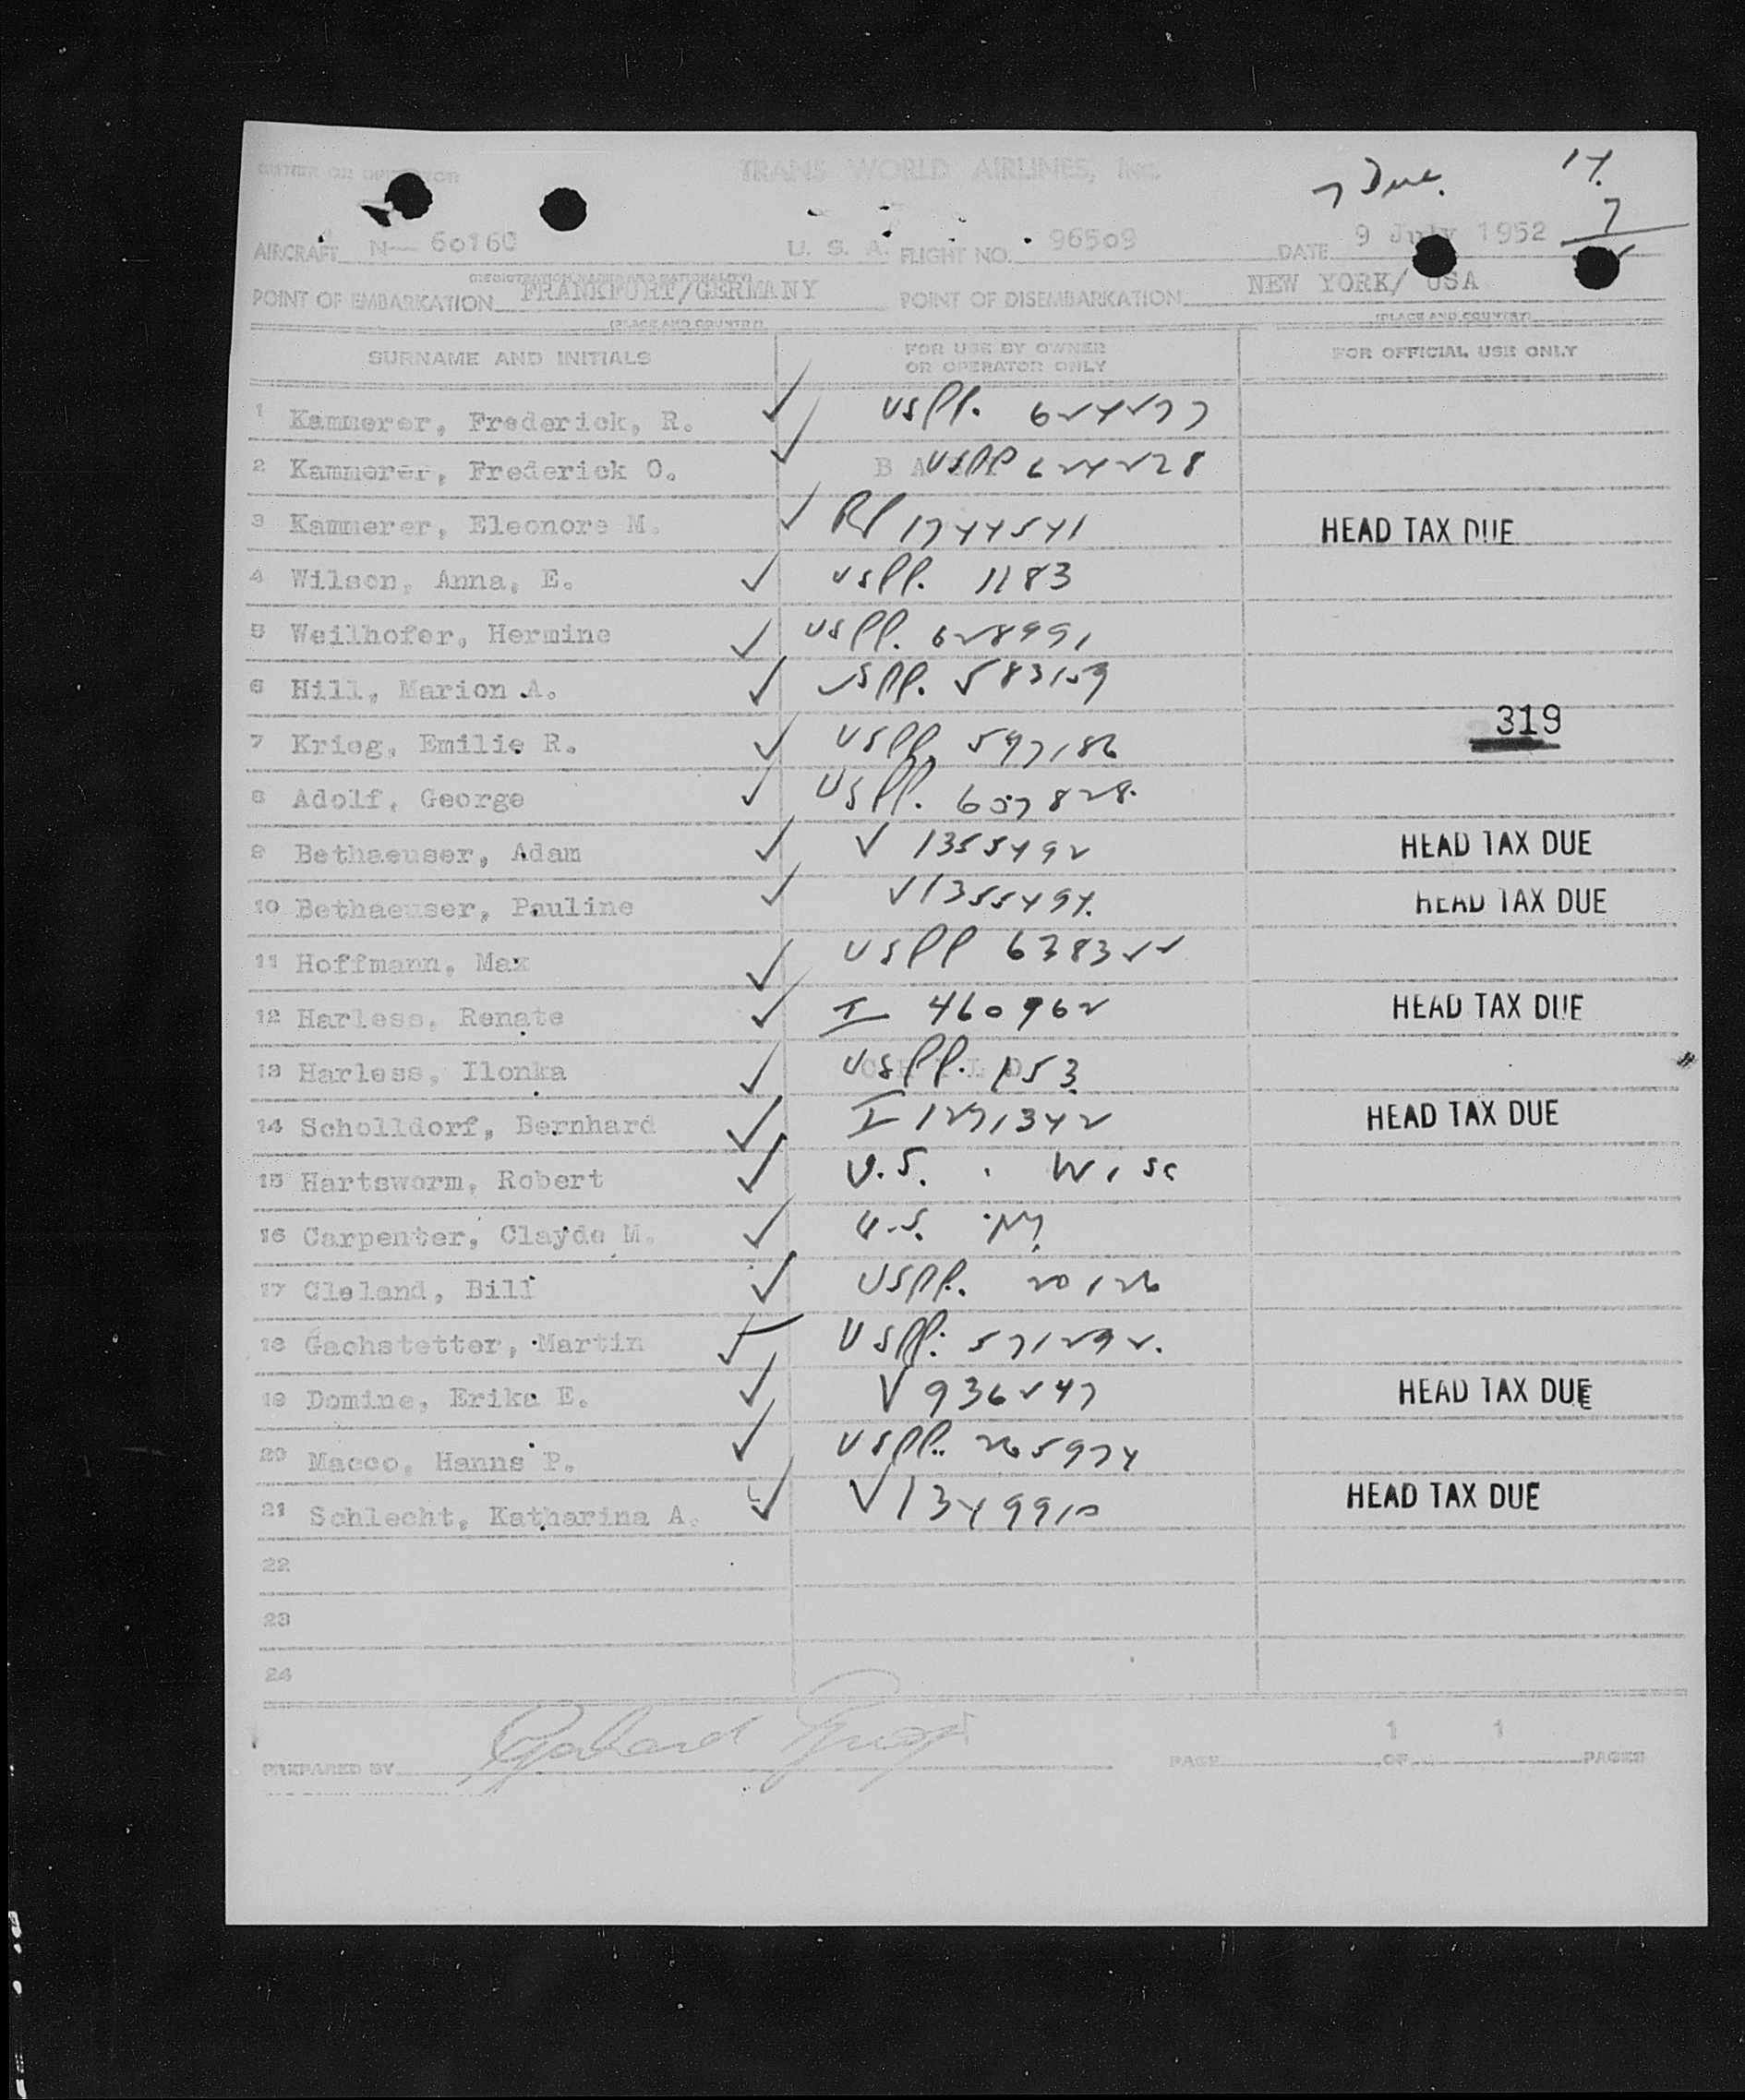 OWNER OR OPERATOR TRANS WORLD AIRLINES, Inc.
7 Due. 14
7
AIRCRAFT N— 6016C U. S. A. FLIGHT NO. 96509 DATE 9 July 1952
(REGISTRATION MARKS AND NATIONALITY)
POINT OF EMBARKATION FRANKFURT/GERMANY POINT OF DISEMBARKATION NEW YORK/ USA
(PLACE AND COUNTRY) (PLACE AND COUNTRY)
SURNAME AND INITIALS FOR USE BY OWNER OR OPERATOR ONLY FOR OFFICIAL USE ONLY
1 Kammerer, Frederick, R. ✓ USPP. 624277
2 Kammerer, Frederick O. ✓ USPP 624228
3 Kammerer, Eleonore M. ✓ RP 1744541 HEAD TAX DUE
4 Wilson, Anna, E. ✓ USPP. 1183
5 Weilhofer, Hermine ✓ USPP. 628991
6 Hill, Marion A. ✓ USPP. 583159
7 Krieg, Emilie R. ✓ USPP. 597186 319
8 Adolf, George ✓ USPP. 607828.
9 Bethaeuser, Adam ✓ V 1355492 HEAD TAX DUE
10 Bethaeuser, Pauline ✓ V 1355494. HEAD TAX DUE
11 Hoffmann, Max ✓ USPP 638322
12 Harless, Renate ✓ I 460962 HEAD TAX DUE
13 Harless, Ilonka ✓ USPP. 153
14 Scholldorf, Bernhard ✓ I 1291342 HEAD TAX DUE
15 Hartsworm, Robert ✓ U.S. Wisc
16 Carpenter, Clayde M. ✓ U.S. NY
17 Cleland, Bill ✓ USPP. 20126
18 Gachstetter, Martin ✓ USPP. 571292.
19 Domine, Erika E. ✓ V 936247 HEAD TAX DUE
20 Macco, Hanns P. ✓ USPP. 265974
21 Schlecht, Katharina A. ✓ V 1349910 HEAD TAX DUE
22
23
24
PREPARED BY PAGE 1 OF 1 PAGES